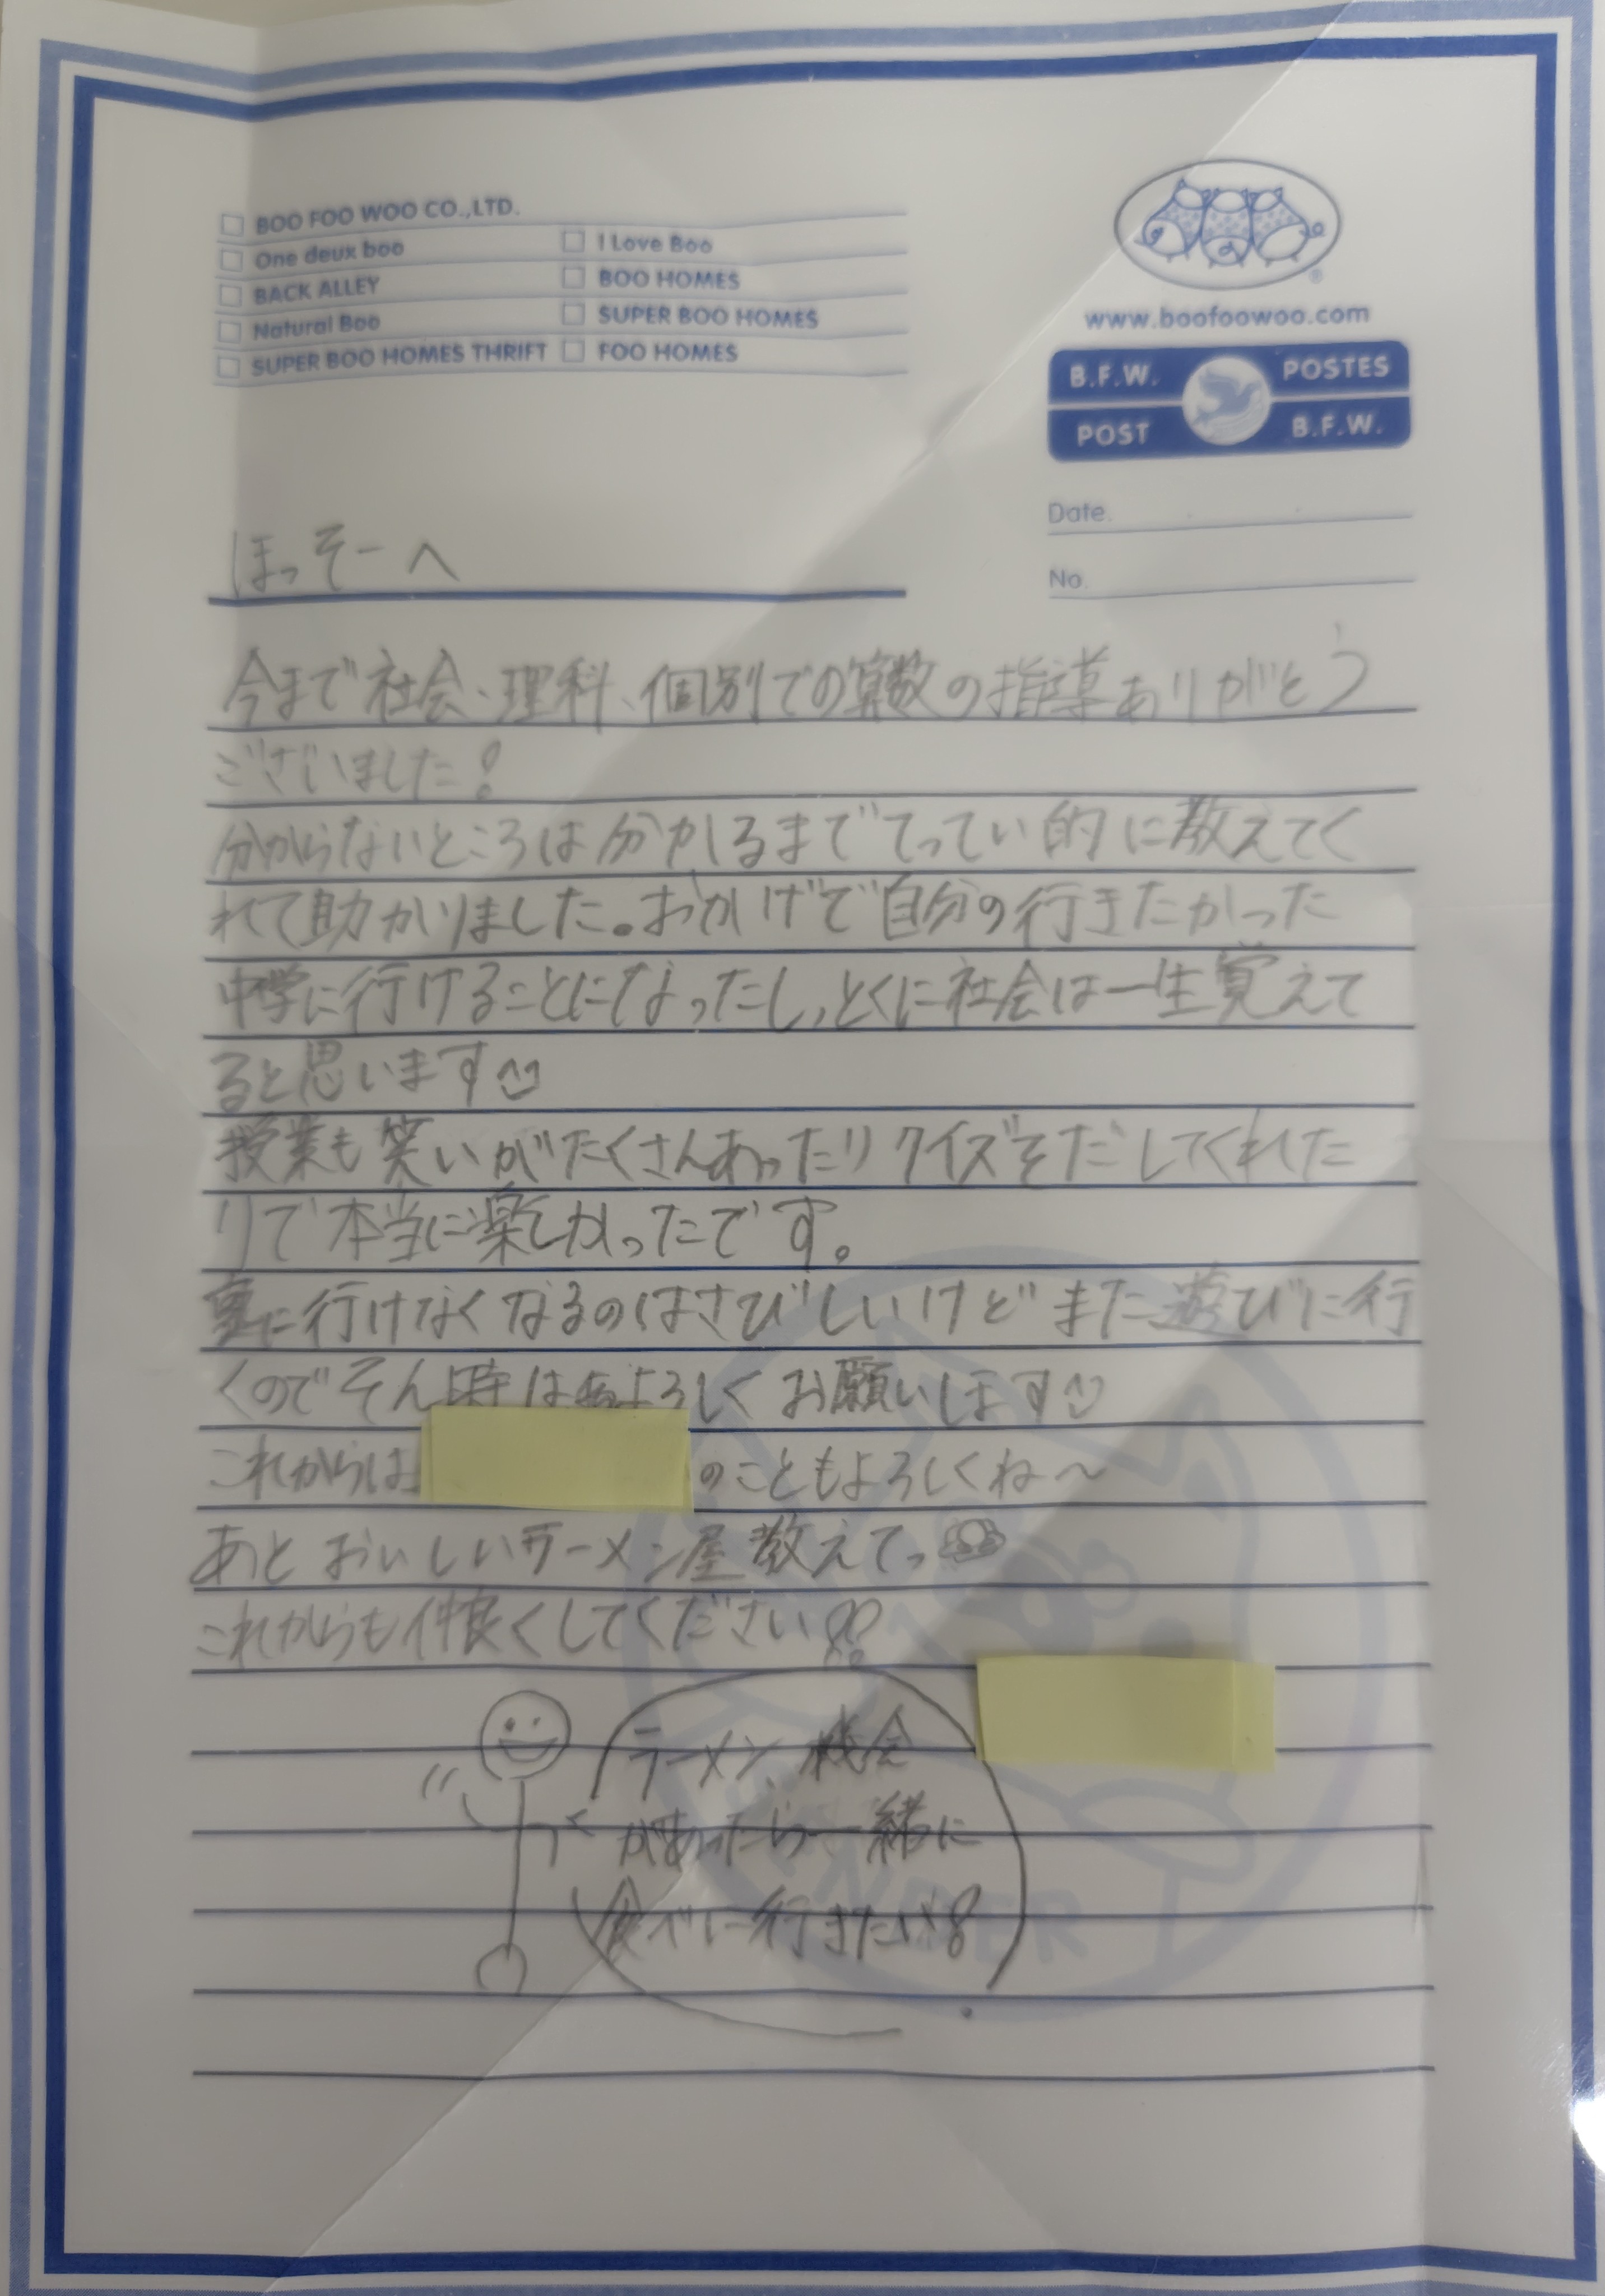 BOO FOO WOO CO.,LTD.
One deux boo
I Love Boo
BACK ALLEY
BOO HOMES
Natural Boo
SUPER BOO HOMES
SUPER BOO HOMES THRIFT
FOO HOMES
®
www.boofoowoo.com
B.F.W. POSTES
POST B.F.W.
Date.
No.
ほっそーへ
今まで社会、理科、個別での算数の指導ありがとう
ございました!
分からないところは分かるまでてってい的に教えてく
れて助かりました。おかげで自分の行きたかった
中学に行けることになったし、とくに社会は一生覚えて
ると思います
授業も笑いがたくさんあったりクイズをだしてくれた
りで本当に楽しかったです。
に行けなくなるのはさびしいけどまた遊びに行
くのでそん時はよろしくお願いします
これからは
のこともよろしくね～
あとおいしいラーメン屋教えてっ
これからも仲良くしてください!!
ラーメン、機会
があったら一緒に
食べに行きたい!